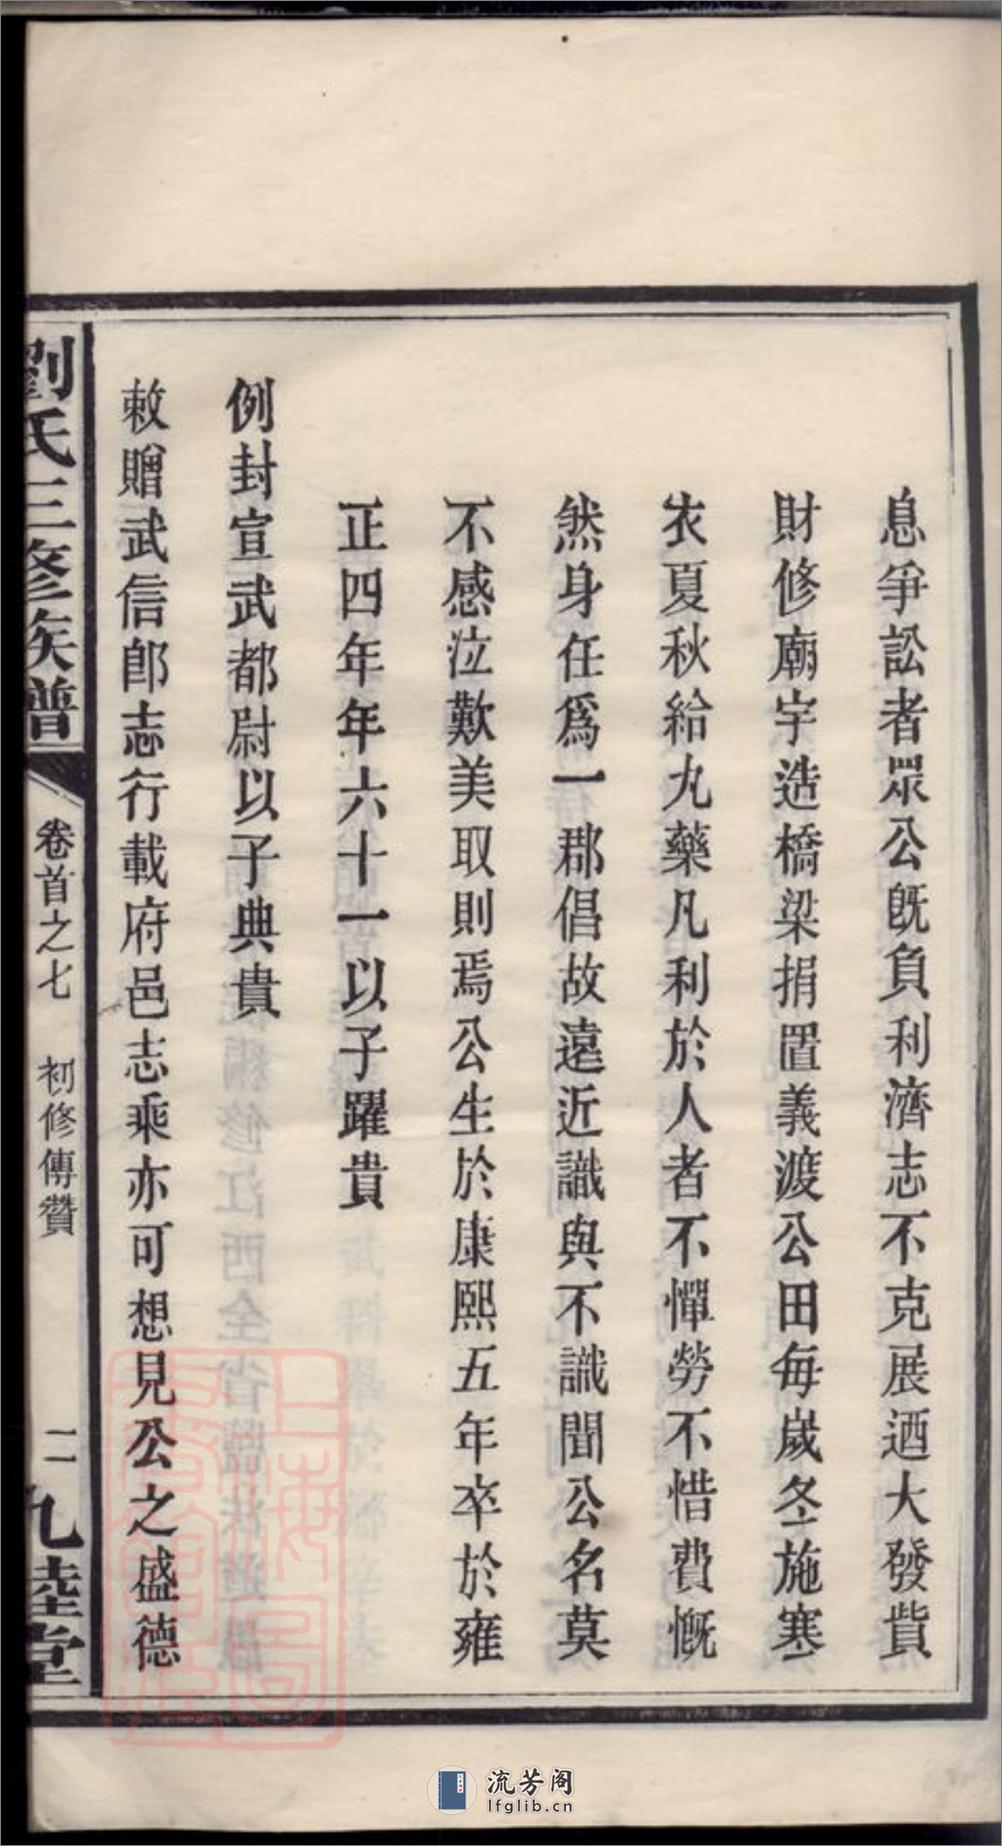 息爭訟者眾公旣負利濟志不克展迺大發貲
財修廟宇造橋梁捐置義渡公田每歲冬施寒
衣夏秋給丸藥凡利於人者不憚勞不惜費慨
然身任爲一郡倡故遠近識與不識聞公名莫
不感泣歎美取則焉公生於康熙五年卒於雍
正四年年六十一以子躍貴
例封宣武都尉以子典貴
敕贈武信郎志行載府邑志乘亦可想見公之盛德
劉氏三修族譜
卷首之七 初修傳贊
二
九陸堂
上海圖書館藏
流芳阁
lfglib.cn